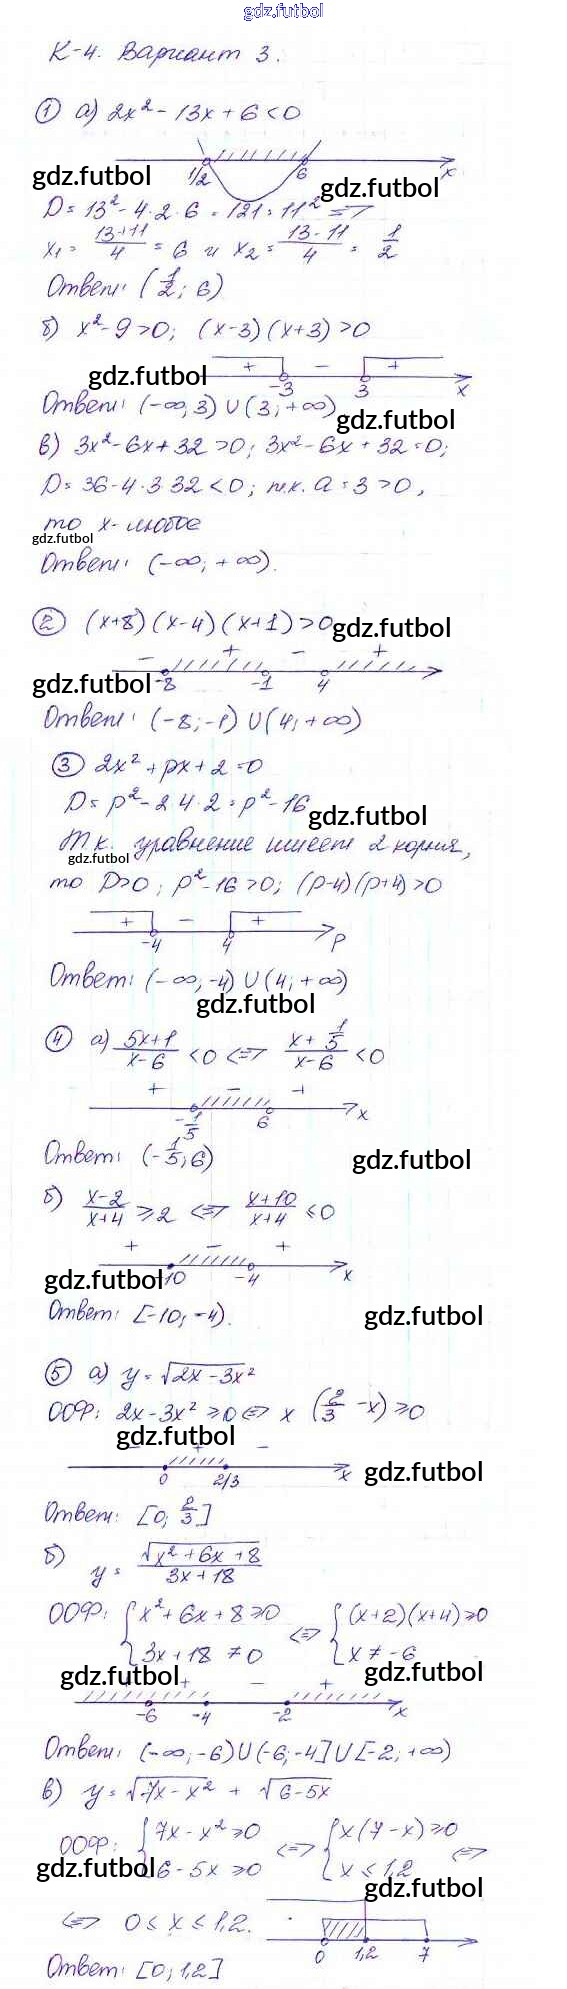 gdz.futbol
К-4. Вариант 3.
① а) 2x² - 13x + 6 < 0
1/2 6 x
gdz.futbol
gdz.futbol
D = 13² - 4·2·6 = 121 = 11² =>
x₁ = (13+11)/4 = 6 и x₂ = (13-11)/4 = 1/2
Ответ: (1/2; 6)
б) x² - 9 > 0; (x-3)(x+3) > 0
+ - +
gdz.futbol
-3 3 x
Ответ: (-∞; 3) ∪ (3; +∞)
gdz.futbol
в) 3x² - 6x + 32 > 0; 3x² - 6x + 32 = 0;
D = 36 - 4·3·32 < 0; т.к. a = 3 > 0,
то x - любое
gdz.futbol
Ответ: (-∞; +∞).
② (x+8)(x-4)(x+1) > 0
gdz.futbol
- + - +
gdz.futbol
-8 -1 4
Ответ: (-8; -1) ∪ (4; +∞)
③ 2x² + px + 2 = 0
D = p² - 2·4·2 = p² - 16
gdz.futbol
Т.к. уравнение имеет 2 корня,
gdz.futbol
то D>0; p² - 16 > 0; (p-4)(p+4) > 0
+ - +
-4 4 p
Ответ: (-∞; -4) ∪ (4; +∞)
gdz.futbol
④ а) (5x+1)/(x-6) < 0 <=> (x + 1/5)/(x-6) < 0
+ - +
-1/5 6 x
Ответ: (-1/5; 6)
gdz.futbol
б) (x-2)/(x+4) ≥ 2 <=> (x+10)/(x+4) ≤ 0
+ - +
gdz.futbol
-10 -4 x
Ответ: [-10; -4).
gdz.futbol
⑤ а) y = √(2x - 3x²)
ООФ: 2x - 3x² ≥ 0 <=> x (2/3 - x) ≥ 0
gdz.futbol
- + -
0 2/3 x
gdz.futbol
Ответ: [0; 2/3]
б) y = √(x² + 6x + 8)/(3x + 18)
ООФ: { x² + 6x + 8 ≥ 0 <=> { (x+2)(x+4) ≥ 0
3x + 18 ≠ 0 x ≠ -6
gdz.futbol
gdz.futbol
+ - +
-6 -4 -2 x
Ответ: (-∞; -6) ∪ (-6; -4] ∪ [-2; +∞)
в) y = √(7x - x²) + √(6 - 5x)
ООФ: { 7x - x² ≥ 0 <=> { x(7 - x) ≥ 0
6 - 5x ≥ 0 x ≤ 1,2 <=>
gdz.futbol
gdz.futbol
<=> 0 ≤ x ≤ 1,2.
0 1,2 7
Ответ: [0; 1,2]